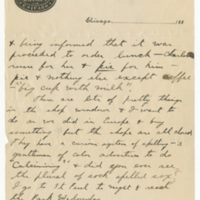 Chicago 188
& being informed that it was
proceeded to order lunch — Charlotte
russe for her & pie for him —
pie & nothing else except coffee
"big cup with milk".
There are lots of pretty things
in the shop windows & I want to
do as we did in Europe & buy
something but the shops are all closed.
They have a curious system of spelling — a
gentleman of color advertises to do
"Calcimining" & did you ever see
the plural of sock spelled sox?
I go to St Paul to night & reach
Park Wednesday